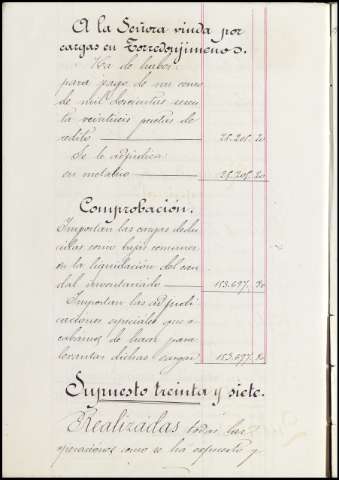 A la Señora viuda por
cargas en Torredonjimeno.
Ha de haber
para pago de un censo
de mil doscientas sesen
ta veintiseis pesetas de
redito 25.205.20
Se le adjudica
en metalico 25.205.20
Comprobación.
Importan las cargas dedu
cidas como bajas comunes
en la liquidación del cau
dal inventariado 153.697.90
Importan las adjudi
caciones especiales que a
cabamos de hacer para
levantar dichas cargas 153.697.90
Supuesto treinta y siete.
Realizadas todas las
operaciones como se ha expuesto y